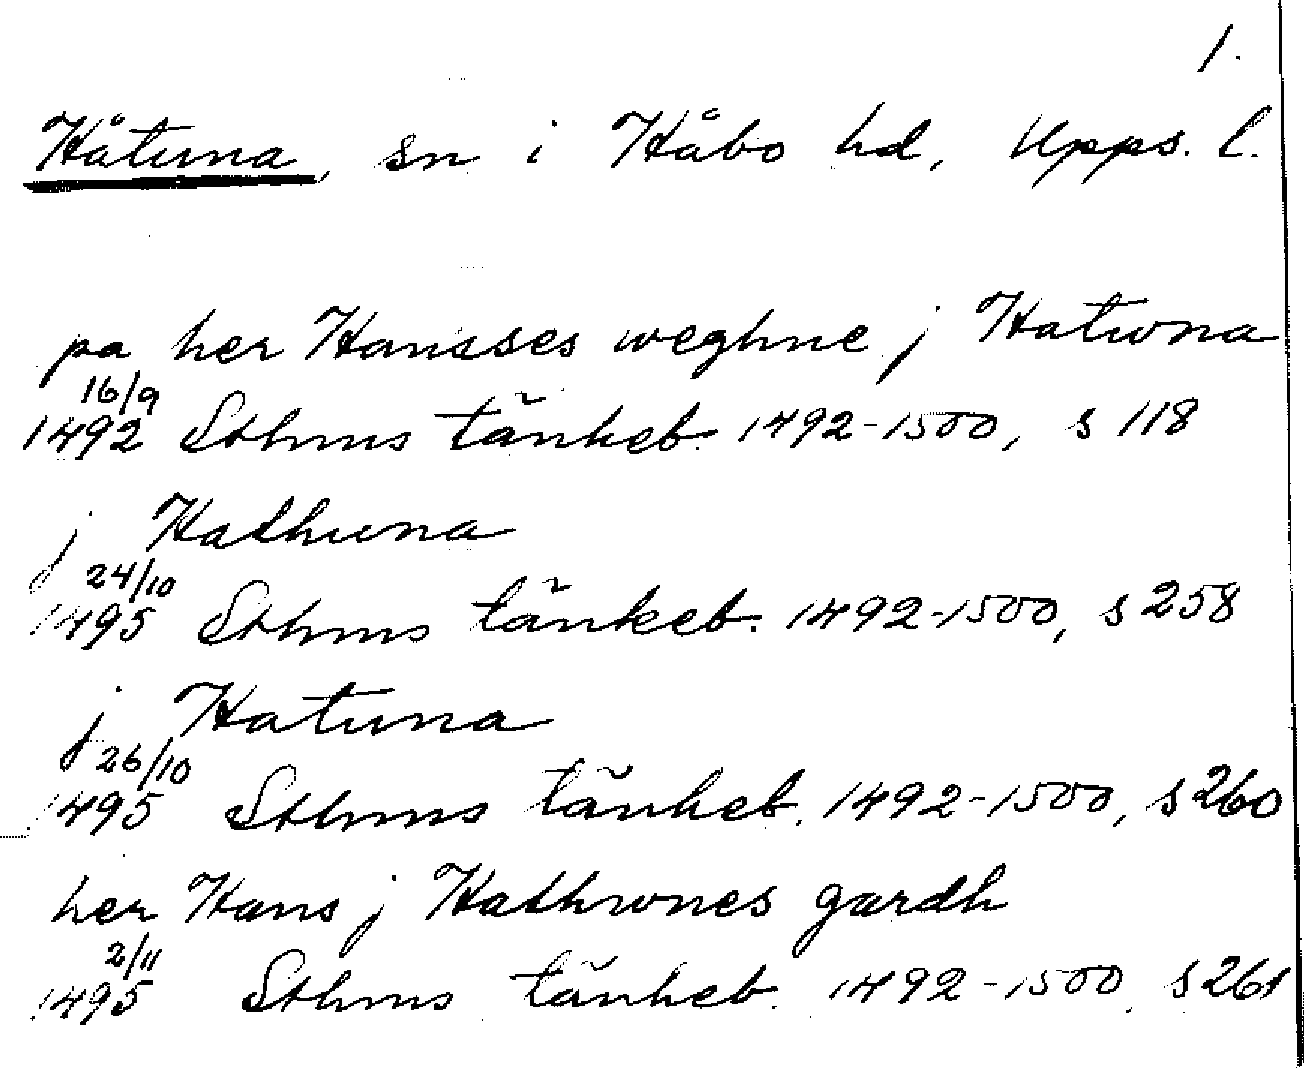 1.
Håtuna, sn i Håbo hd, Upps. l.
pa her Hansses weghne j Hatwna
16/9
1492 Sthms tänkeb. 1492-1500, s 118
j Hathuna
24/10
1495 Sthms tänkeb. 1492-1500, s 258
j Hatuna
26/10
1495 Sthms tänkeb. 1492-1500, s 260
her Hans j Hathwnes gardh
2/11
1495 Sthms tänkeb. 1492-1500, s 261